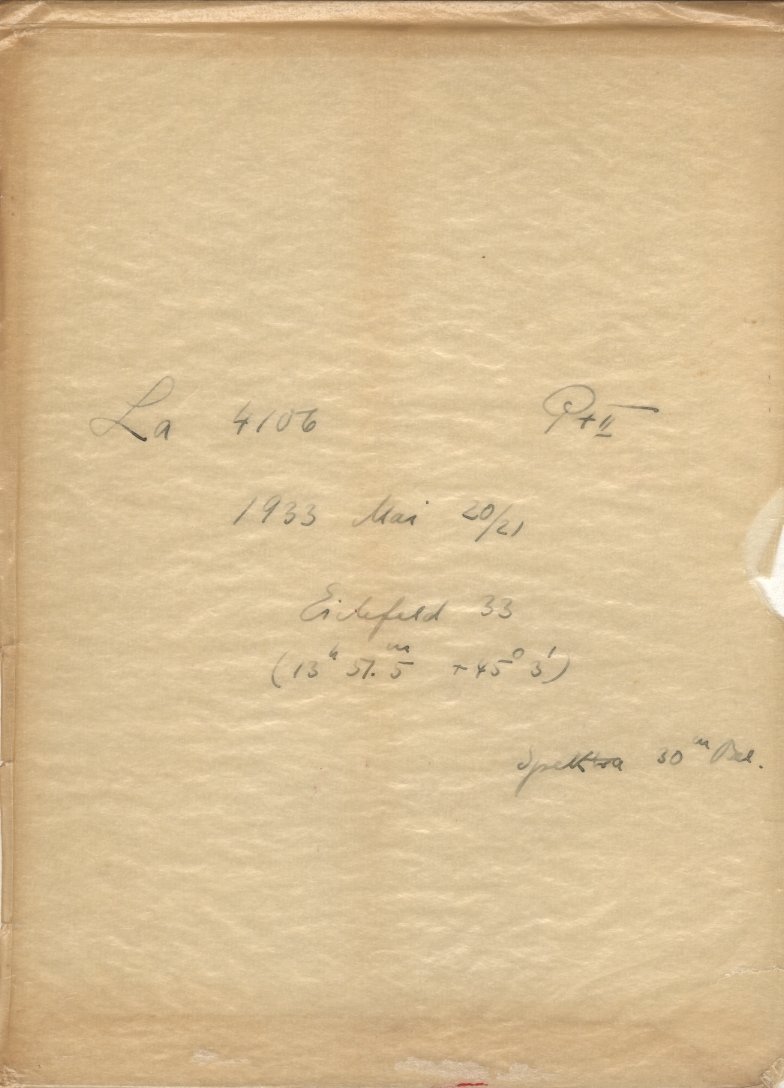 La 4106 P+II
1933 Mai 20/21
Eichfeld 33
(13ʰ 51.ᵐ5 +45° 3')
Spektra 30ᵐ Bel.